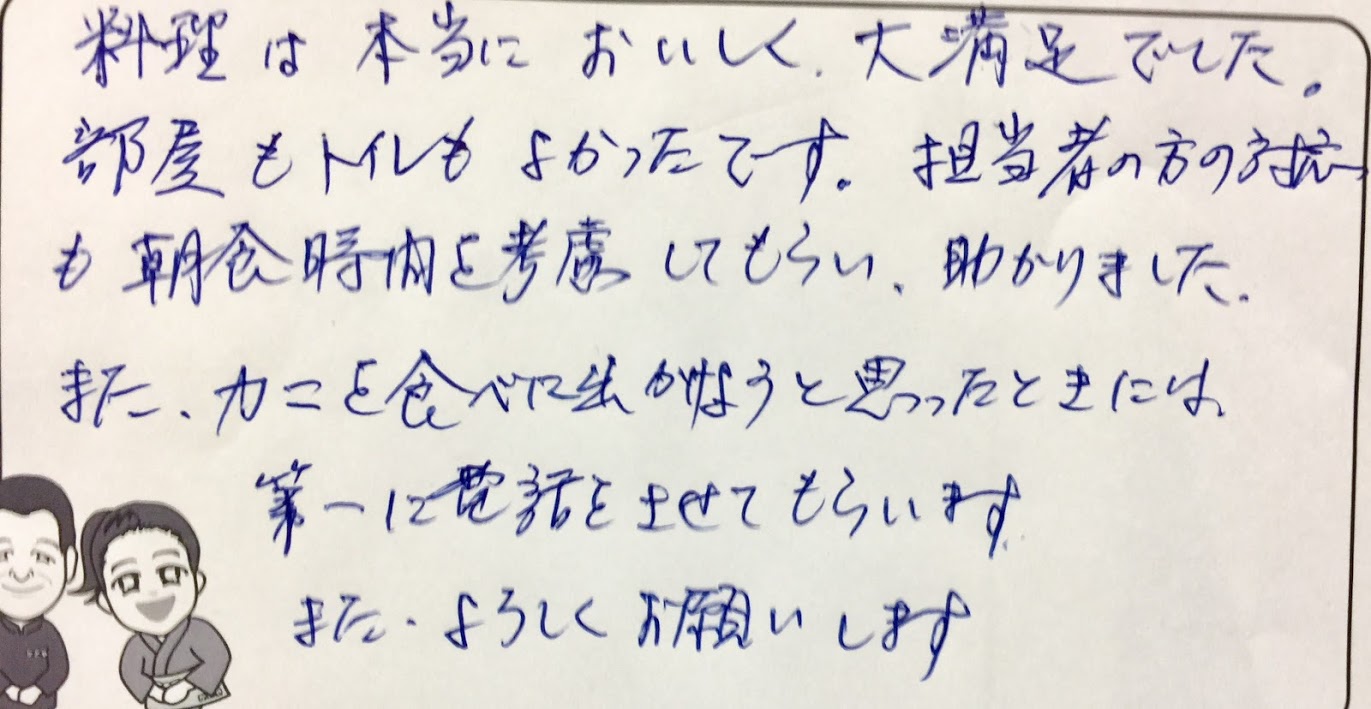 料理は本当においしく、大満足でした。
部屋もトイレもよかったです。担当者の方の対応
も朝食時間を考慮してもらい、助かりました。
また、カニを食べに出かけようと思ったときには、
第一に電話をさせてもらいます。
また、よろしくお願いします